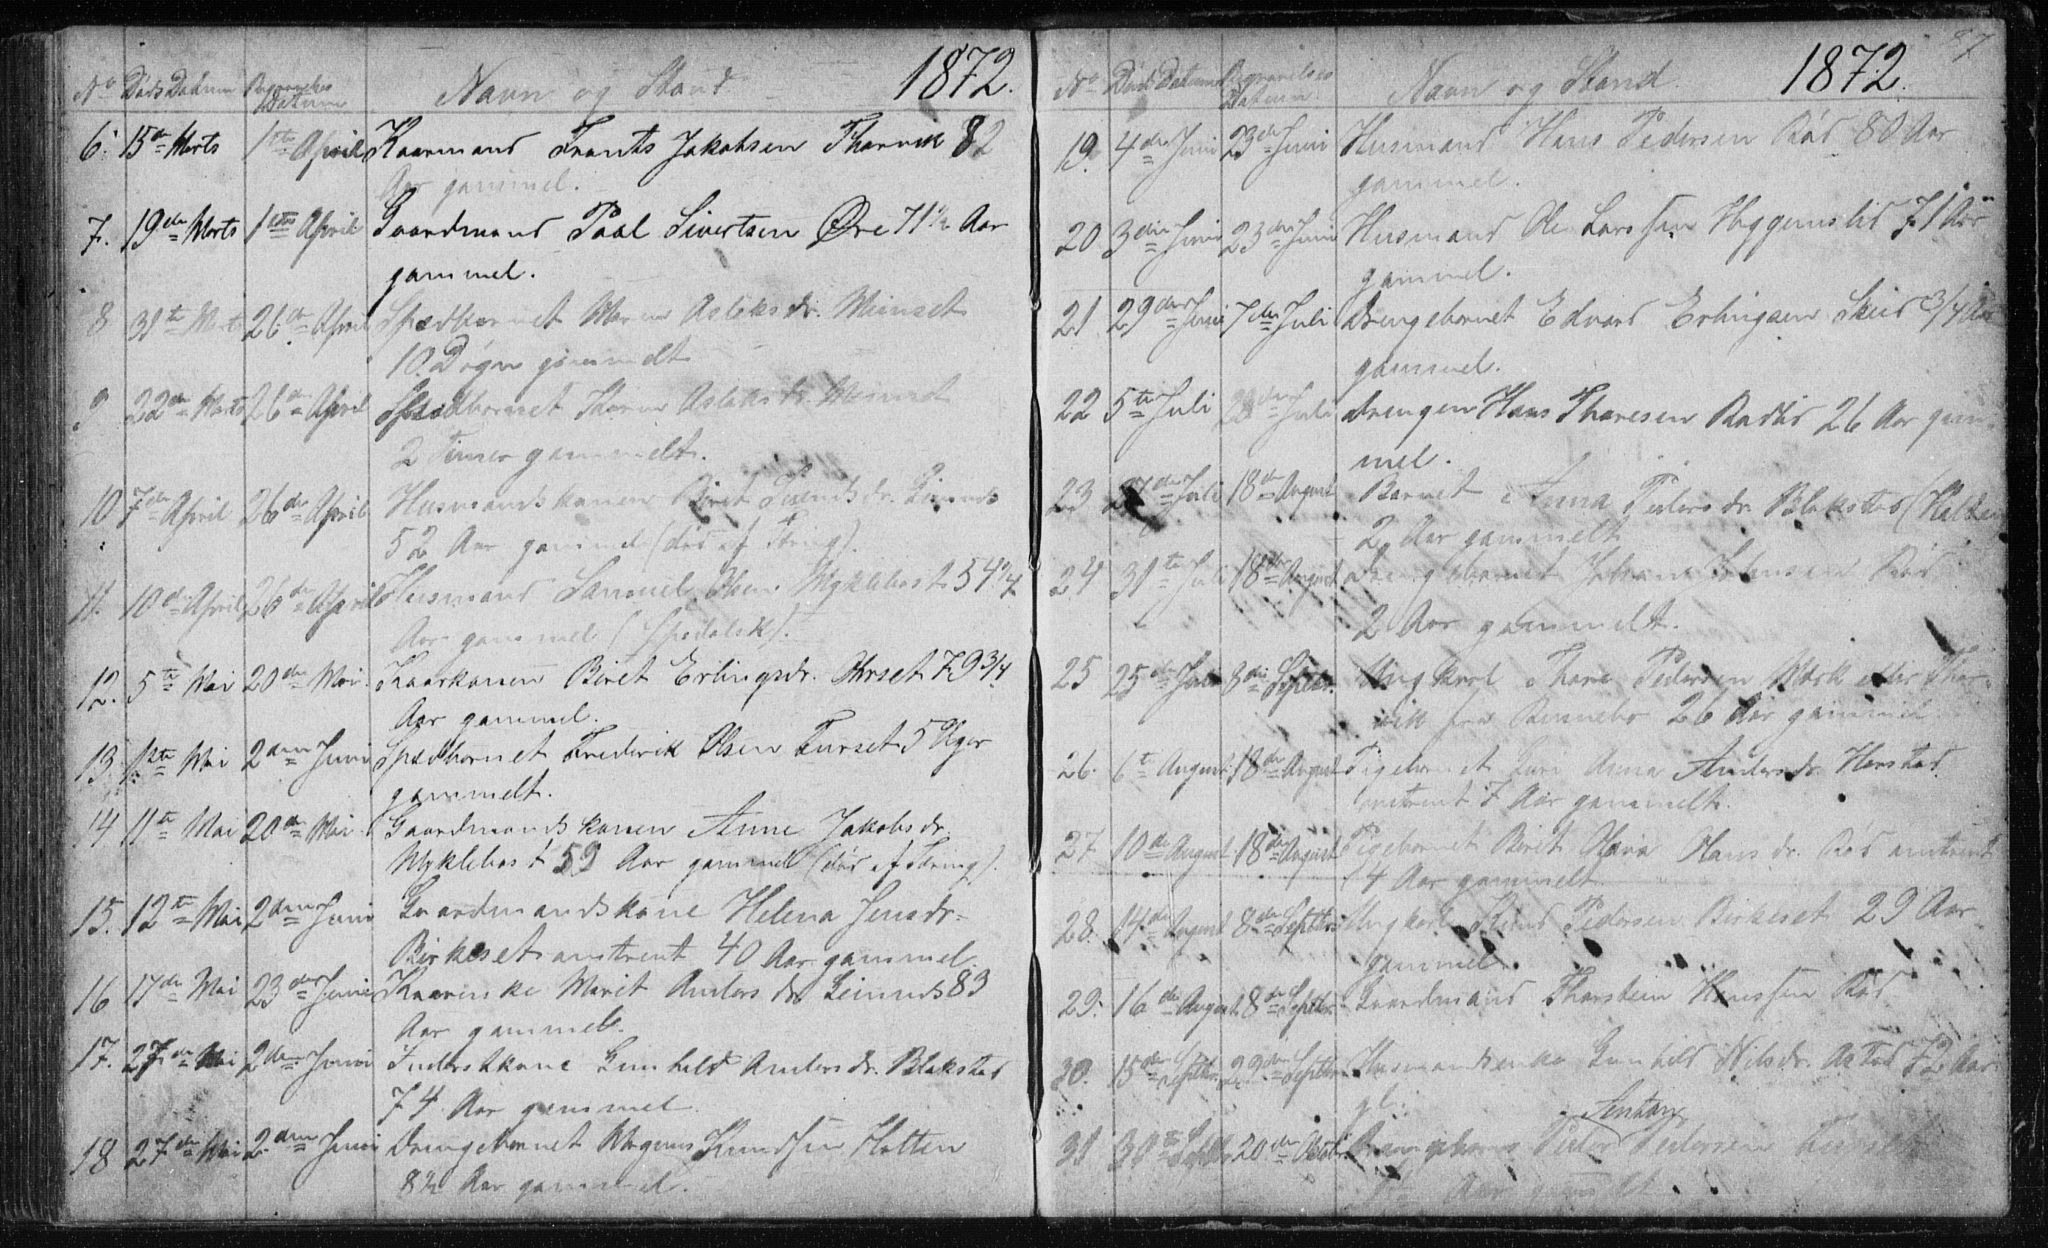 No Døds Datum Begravelses Datum Navn og Stand 1872.
6. 15de Marts 1ste April Kaarmand Frants Jakobsen Tharvik 82
Aar gammel.
7. 19de Marts 1ste April Gaardmand Paal Sivertsen Øre 71½ Aar
gammel.
8 31te Marts 26de April Spædbarnet Maren Aslaksdr. Meinset
10 Døgn gammelt
9 22de Marts 26de April Spædbarnet Aslaksdr. Meinset
2 Timer gammelt.
10 7de April 26de April Husmandskonen Beret
52 Aar gammel (død af Tæring).
11. 10de April 26de April Husmand Samuel Olsen Myklebost 54
Aar gammel (spedalsk).
12. 5te Mai 20de Mai. Kaarkonen Beret Erlingsdr. Ohrset 79 3/4
Aar gammel.
13. 1ste Mai 2den Juni Spædbarnet Frederik Olsen Furset 5 Uger
gammelt.
14 11te Mai 20de Mai. Gaardmandskonen Anne Jakobsdr.
Myklebost 59 Aar gammel (død af Tæring).
15. 12te Mai 2den Juni Gaardmandskone Helena Jensdr.
Birkeset omtrent 40 Aar gammel.
16 17de Mai 23de Juni Kaarenke Marit Andersdr. 83
Aar gammel.
17. 27de Mai 2den Juni Inderstkone Gunhild Andersdr. Blakstad
74 Aar gammel
18 27de Mai 2den Juni Drengebarnet Magnus Knudsen Holten
8½ Aar gammel.
No Døds Datum Begravelses Datum. Navn og Stand. 1872. 87
19. 4de Juni 23de Juni Husmand Hans Pedersen Rød 80 Aar
gammel.
20 3die Juni 23de Juni Husmand Ole Larssen Haggemslid 71 Aar
gammel.
21 29de Juni 7de Juli Drengebarnet Edvard Erlingsen Skeid 3/4 Aar
gammel.
22 5te Juli Juli Drengen Hans Tharesen 26 Aar gam-
mel.
23 27de Juli 18de August Barnet Anna Pedersdr. Blakstad (Holten
2 Aar gammelt
24 31te Juli 18de August Drengebarnet Johan Johansen Rød
2 Aar gammelt.
25 25de Juli 8de Septbr. Ungkarl Thore Pedersen eller Thar-
vik fra 26 Aar gammel.
26. 6te August 18de August Pigebarnet Guri Anna Andersdr. Harstad
omtrent 7 Aar gammelt.
27 10de August 18de August Pigebarnet Beret Hansdr. Rød omtrent
14 Aar gammelt
28. 14de August 8de Septbr. Ungkarl Pedersen Birkeset 29 Aar
gammel
29. 16de August 8de Septbr. Gaardmand Tharstein Hanssen Rød
30. 15de Septbr. 29de Septbr. Husmandsenke Gunhild Nilsdr. Astad 72 Aar
gl.
31 30te Septbr 20de Octbr. Drengebarnet Peder Pedersen Furset
Aar gammelt